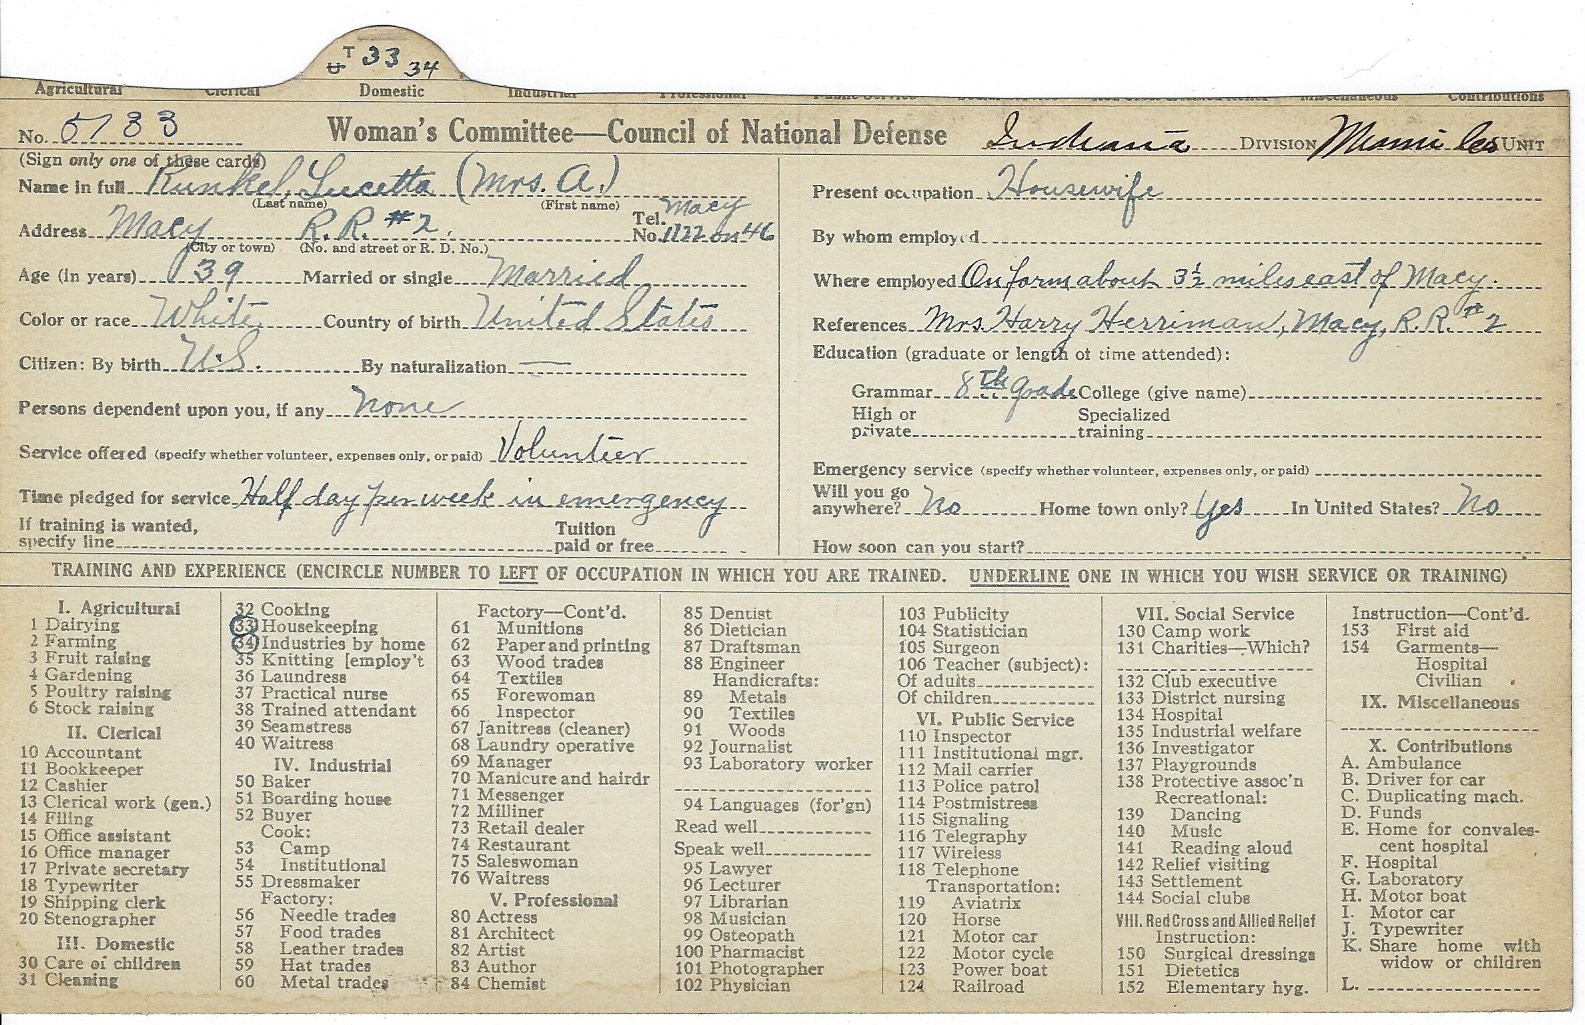 T 33
U 34
Agricultural Clerical Domestic Industrial Professional Public Service Miscellaneous Contributions
No. 5733 Woman's Committee—Council of National Defense Indiana DIVISION Miami Co. UNIT
(Sign only one of these cards)
Name in full Kunkel, Lucetta (Mrs. A.)
(Last name) (First name)
Address Macy R.R. #2. Tel. No. Macy 1122 on 46
(City or town) (No. and street or R. D. No.)
Age (in years) 39 Married or single Married
Color or race White Country of birth United States
Citizen: By birth U.S. By naturalization —
Persons dependent upon you, if any none
Service offered (specify whether volunteer, expenses only, or paid) Volunteer
Time pledged for service Half day per week in emergency
If training is wanted, Tuition
specify line paid or free
Present occupation Housewife
By whom employed
Where employed On farm about 3½ miles east of Macy.
References Mrs. Harry Herriman, Macy, R.R. #2
Education (graduate or length of time attended):
Grammar 8th grade College (give name)
High or Specialized
private training
Emergency service (specify whether volunteer, expenses only, or paid)
Will you go
anywhere? No Home town only? Yes In United States? No
How soon can you start?
TRAINING AND EXPERIENCE (ENCIRCLE NUMBER TO LEFT OF OCCUPATION IN WHICH YOU ARE TRAINED. UNDERLINE ONE IN WHICH YOU WISH SERVICE OR TRAINING)
I. Agricultural
1 Dairying
2 Farming
3 Fruit raising
4 Gardening
5 Poultry raising
6 Stock raising
II. Clerical
10 Accountant
11 Bookkeeper
12 Cashier
13 Clerical work (gen.)
14 Filing
15 Office assistant
16 Office manager
17 Private secretary
18 Typewriter
19 Shipping clerk
20 Stenographer
III. Domestic
30 Care of children
31 Cleaning
32 Cooking
33 Housekeeping
34 Industries by home
35 Knitting [employ't
36 Laundress
37 Practical nurse
38 Trained attendant
39 Seamstress
40 Waitress
IV. Industrial
50 Baker
51 Boarding house
52 Buyer
Cook:
53 Camp
54 Institutional
55 Dressmaker
Factory:
56 Needle trades
57 Food trades
58 Leather trades
59 Hat trades
60 Metal trades
Factory—Cont'd.
61 Munitions
62 Paper and printing
63 Wood trades
64 Textiles
65 Forewoman
66 Inspector
67 Janitress (cleaner)
68 Laundry operative
69 Manager
70 Manicure and hairdr
71 Messenger
72 Milliner
73 Retail dealer
74 Restaurant
75 Saleswoman
76 Waitress
V. Professional
80 Actress
81 Architect
82 Artist
83 Author
84 Chemist
85 Dentist
86 Dietician
87 Draftsman
88 Engineer
Handicrafts:
89 Metals
90 Textiles
91 Woods
92 Journalist
93 Laboratory worker
94 Languages (for'gn)
Read well
Speak well
95 Lawyer
96 Lecturer
97 Librarian
98 Musician
99 Osteopath
100 Pharmacist
101 Photographer
102 Physician
103 Publicity
104 Statistician
105 Surgeon
106 Teacher (subject):
Of adults
Of children
VI. Public Service
110 Inspector
111 Institutional mgr.
112 Mail carrier
113 Police patrol
114 Postmistress
115 Signaling
116 Telegraphy
117 Wireless
118 Telephone
Transportation:
119 Aviatrix
120 Horse
121 Motor car
122 Motor cycle
123 Power boat
124 Railroad
VII. Social Service
130 Camp work
131 Charities—Which?
132 Club executive
133 District nursing
134 Hospital
135 Industrial welfare
136 Investigator
137 Playgrounds
138 Protective assoc'n
Recreational:
139 Dancing
140 Music
141 Reading aloud
142 Relief visiting
143 Settlement
144 Social clubs
VIII. Red Cross and Allied Relief
Instruction:
150 Surgical dressings
151 Dietetics
152 Elementary hyg.
Instruction—Cont'd.
153 First aid
154 Garments—
Hospital
Civilian
IX. Miscellaneous
X. Contributions
A. Ambulance
B. Driver for car
C. Duplicating mach.
D. Funds
E. Home for convales-
cent hospital
F. Hospital
G. Laboratory
H. Motor boat
I. Motor car
J. Typewriter
K. Share home with
widow or children
L.